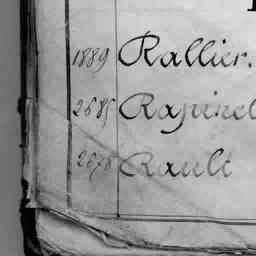 1889 Rallier.
2685 Rapinel
2678 Rault